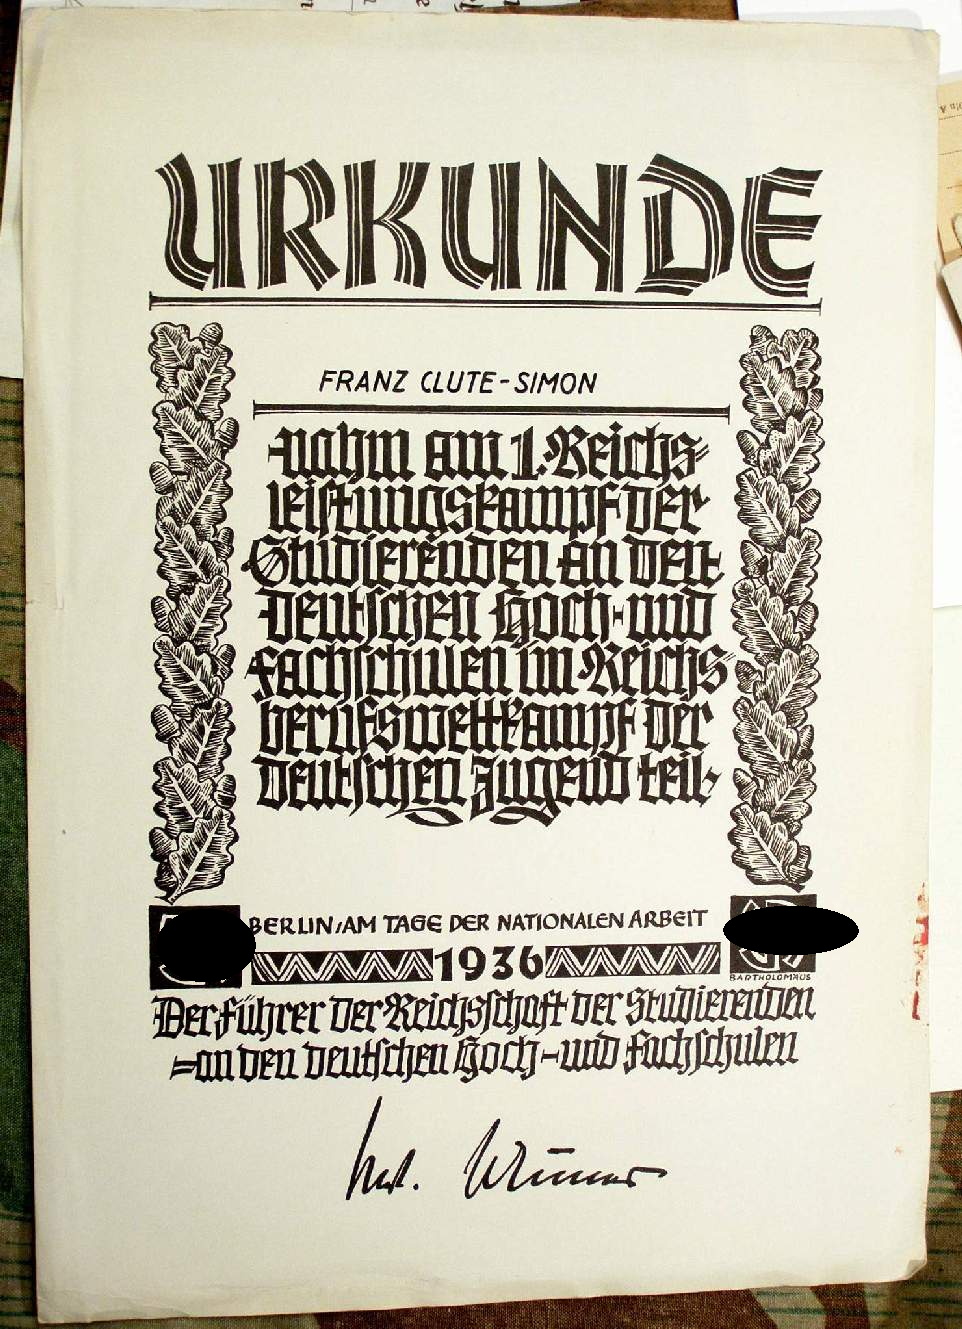 URKUNDE
FRANZ CLUTE-SIMON
nahm am 1. Reichs-
leistungskampf der
Studierenden an den
deutschen Hoch- und
Fachschulen im Reichs-
berufswettkampf der
deutschen Jugend teil
BERLIN/AM TAGE DER NATIONALEN ARBEIT
1936
BARTHOLOMÄUS
Der Führer der Reichsschaft der Studierenden
an den deutschen Hoch- und Fachschulen